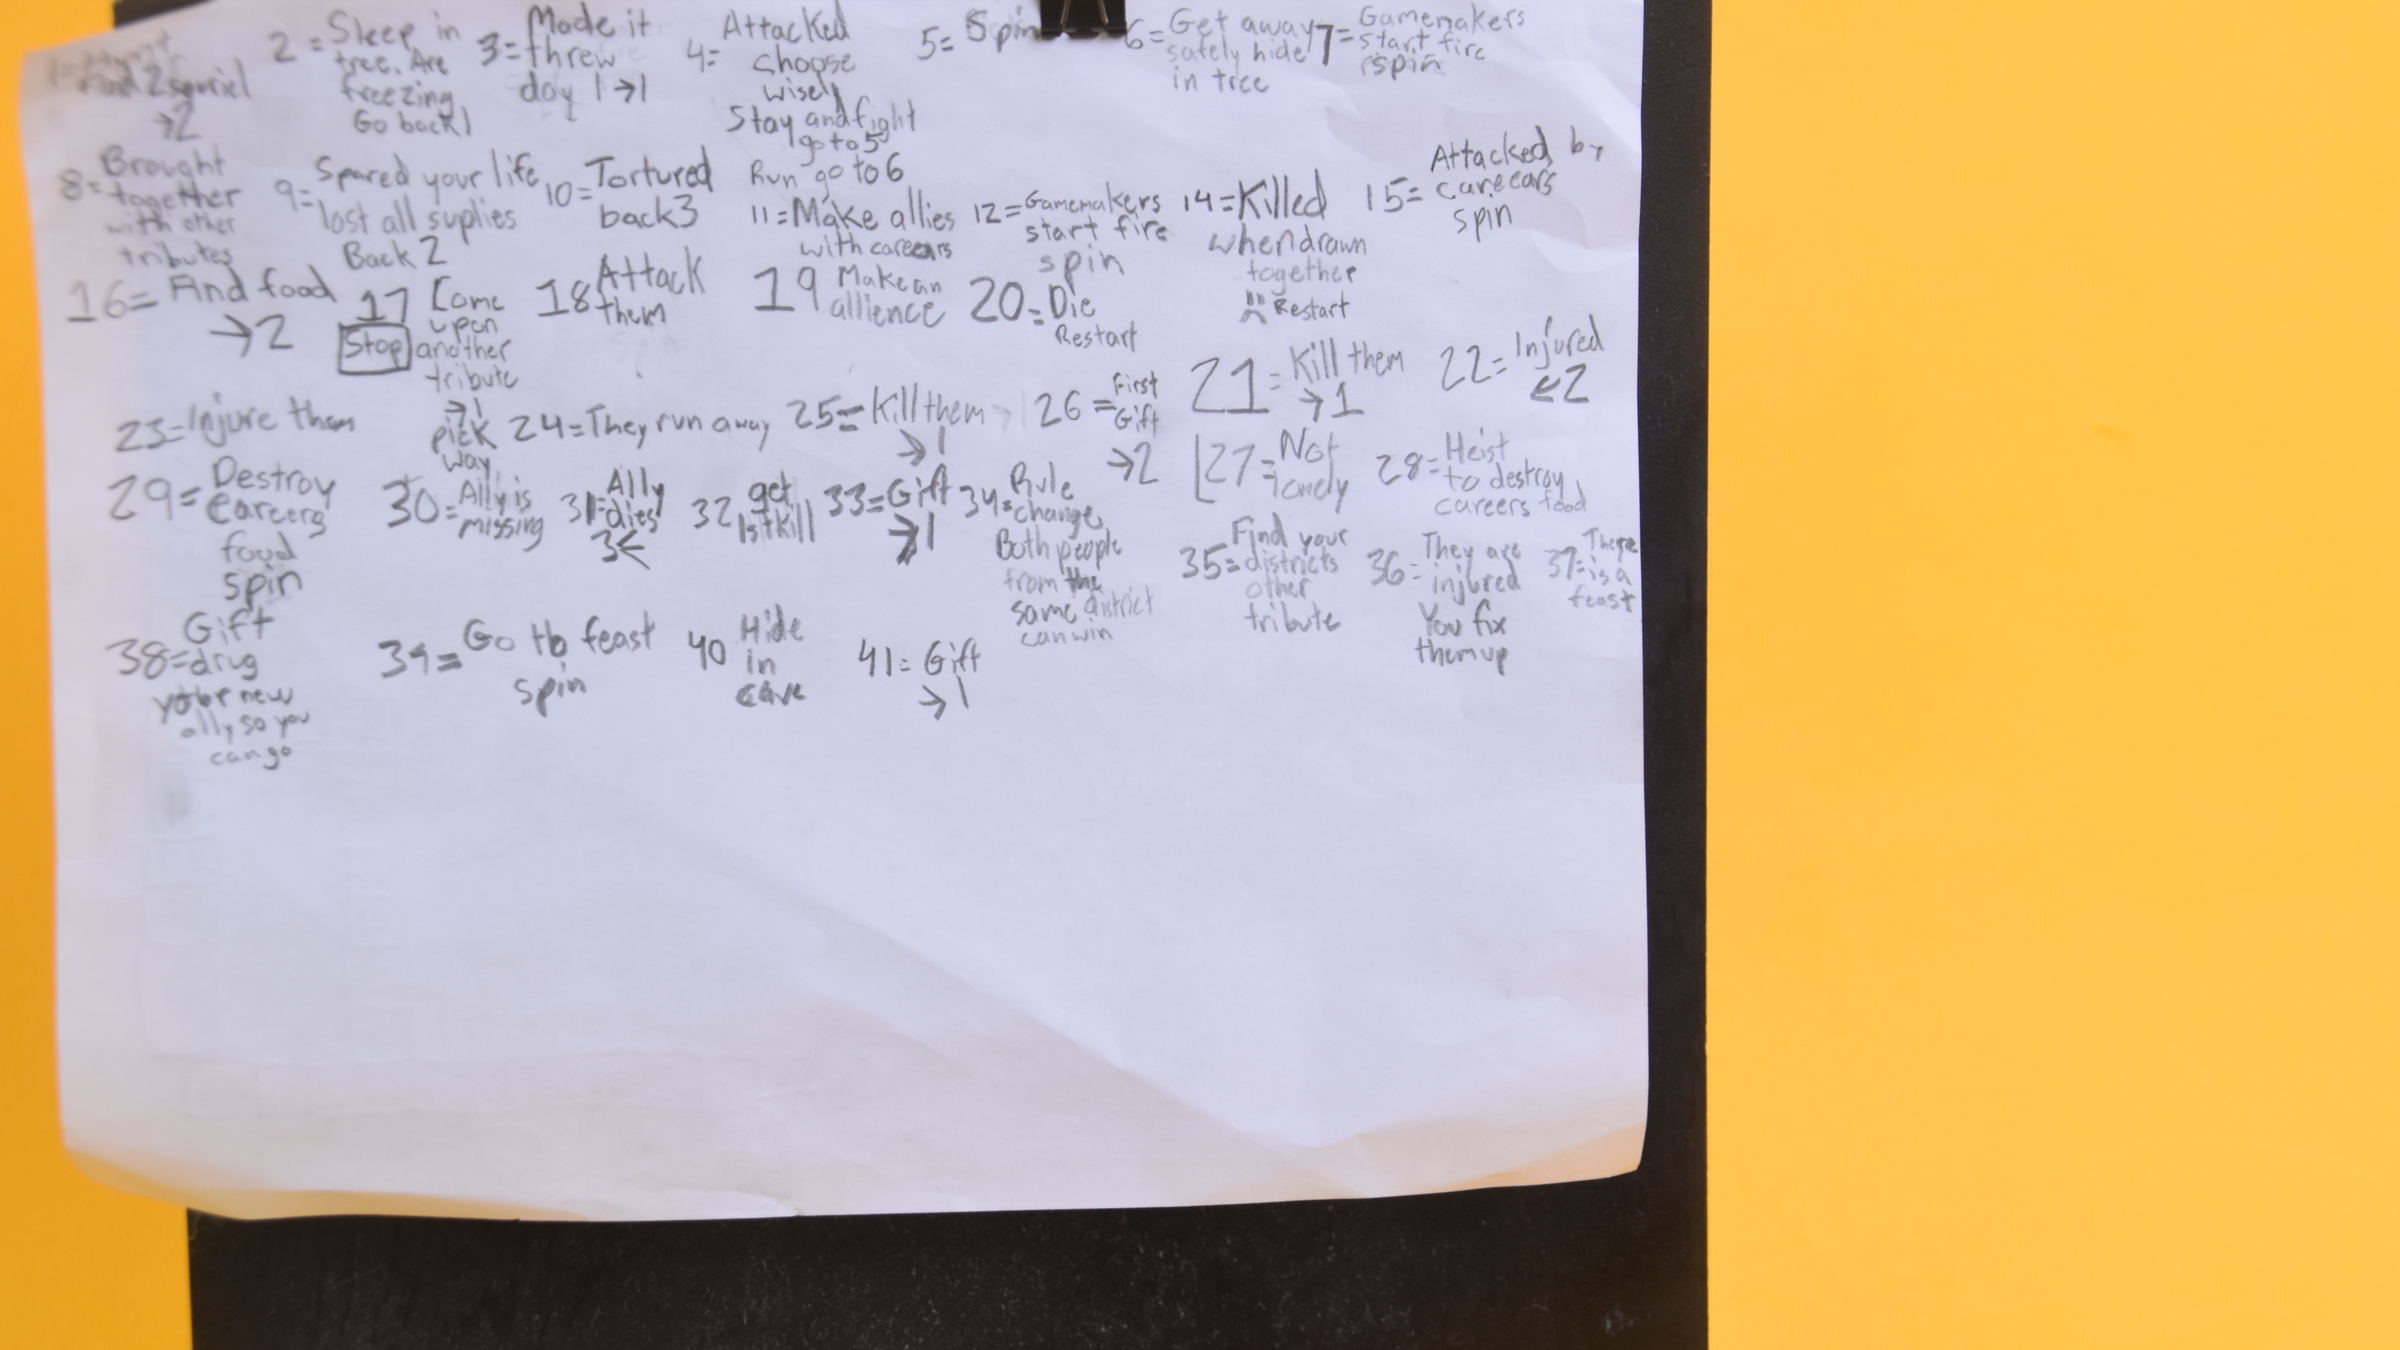 find 2 squriel
→2
2 = Sleep in
tree. Are
freezing
Go back 1
3 = Made it
threw
day 1 →1
4= Attacked
choose
wisely
Stay and fight
go to 5
Run go to 6
5= Spin
6= Get away
safely hide
in tree
7= Gamemakers
start fire
spin
8= Brought
together
with other
tributes
9= Spared your life
lost all suplies
Back 2
10= Tortured
back3
11= Make allies
with careears
12= Gamemakers
start fire
spin
14= Killed
when drawn
together
Restart
15= Attacked by
careears
spin
16= Find food
→2
17 Come
upon
another
tribute
→1
pick
way
Stop
18 Attack
them
19 Make an
allience
20= Die
Restart
21= Kill them
→1
22= Injured
←2
23= Injure them
24= They run away
25= Kill them
→1
26= First
Gift
→2
27= Not
lonely
28= Heist
to destroy
careers food
29= Destroy
careers
food
spin
30= Ally is
missing
31= Ally
dies
3←
32 get
1st kill
33= Gift
→1
34= Rule
change
Both people
from the
same district
can win
35= Find your
districts
other
tribute
36= They are
injured
You fix
them up
37= There
is a
feast
38= Gift
drug
your new
ally so you
can go
39= Go to feast
spin
40 Hide
in
cave
41= Gift
→1